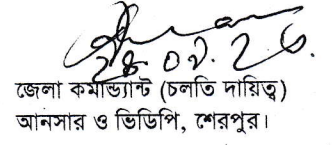 জেলা কমান্ড্যান্ট (চলতি দায়িত্ব)
আনসার ও ভিডিপি, শেরপুর।